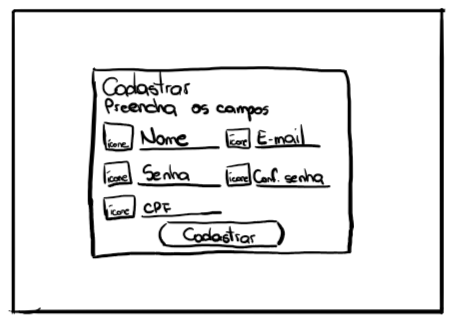 Cadastrar
Preencha os campos
ícone Nome ícone E-mail
ícone Senha ícone Conf. senha
ícone CPF
Cadastrar